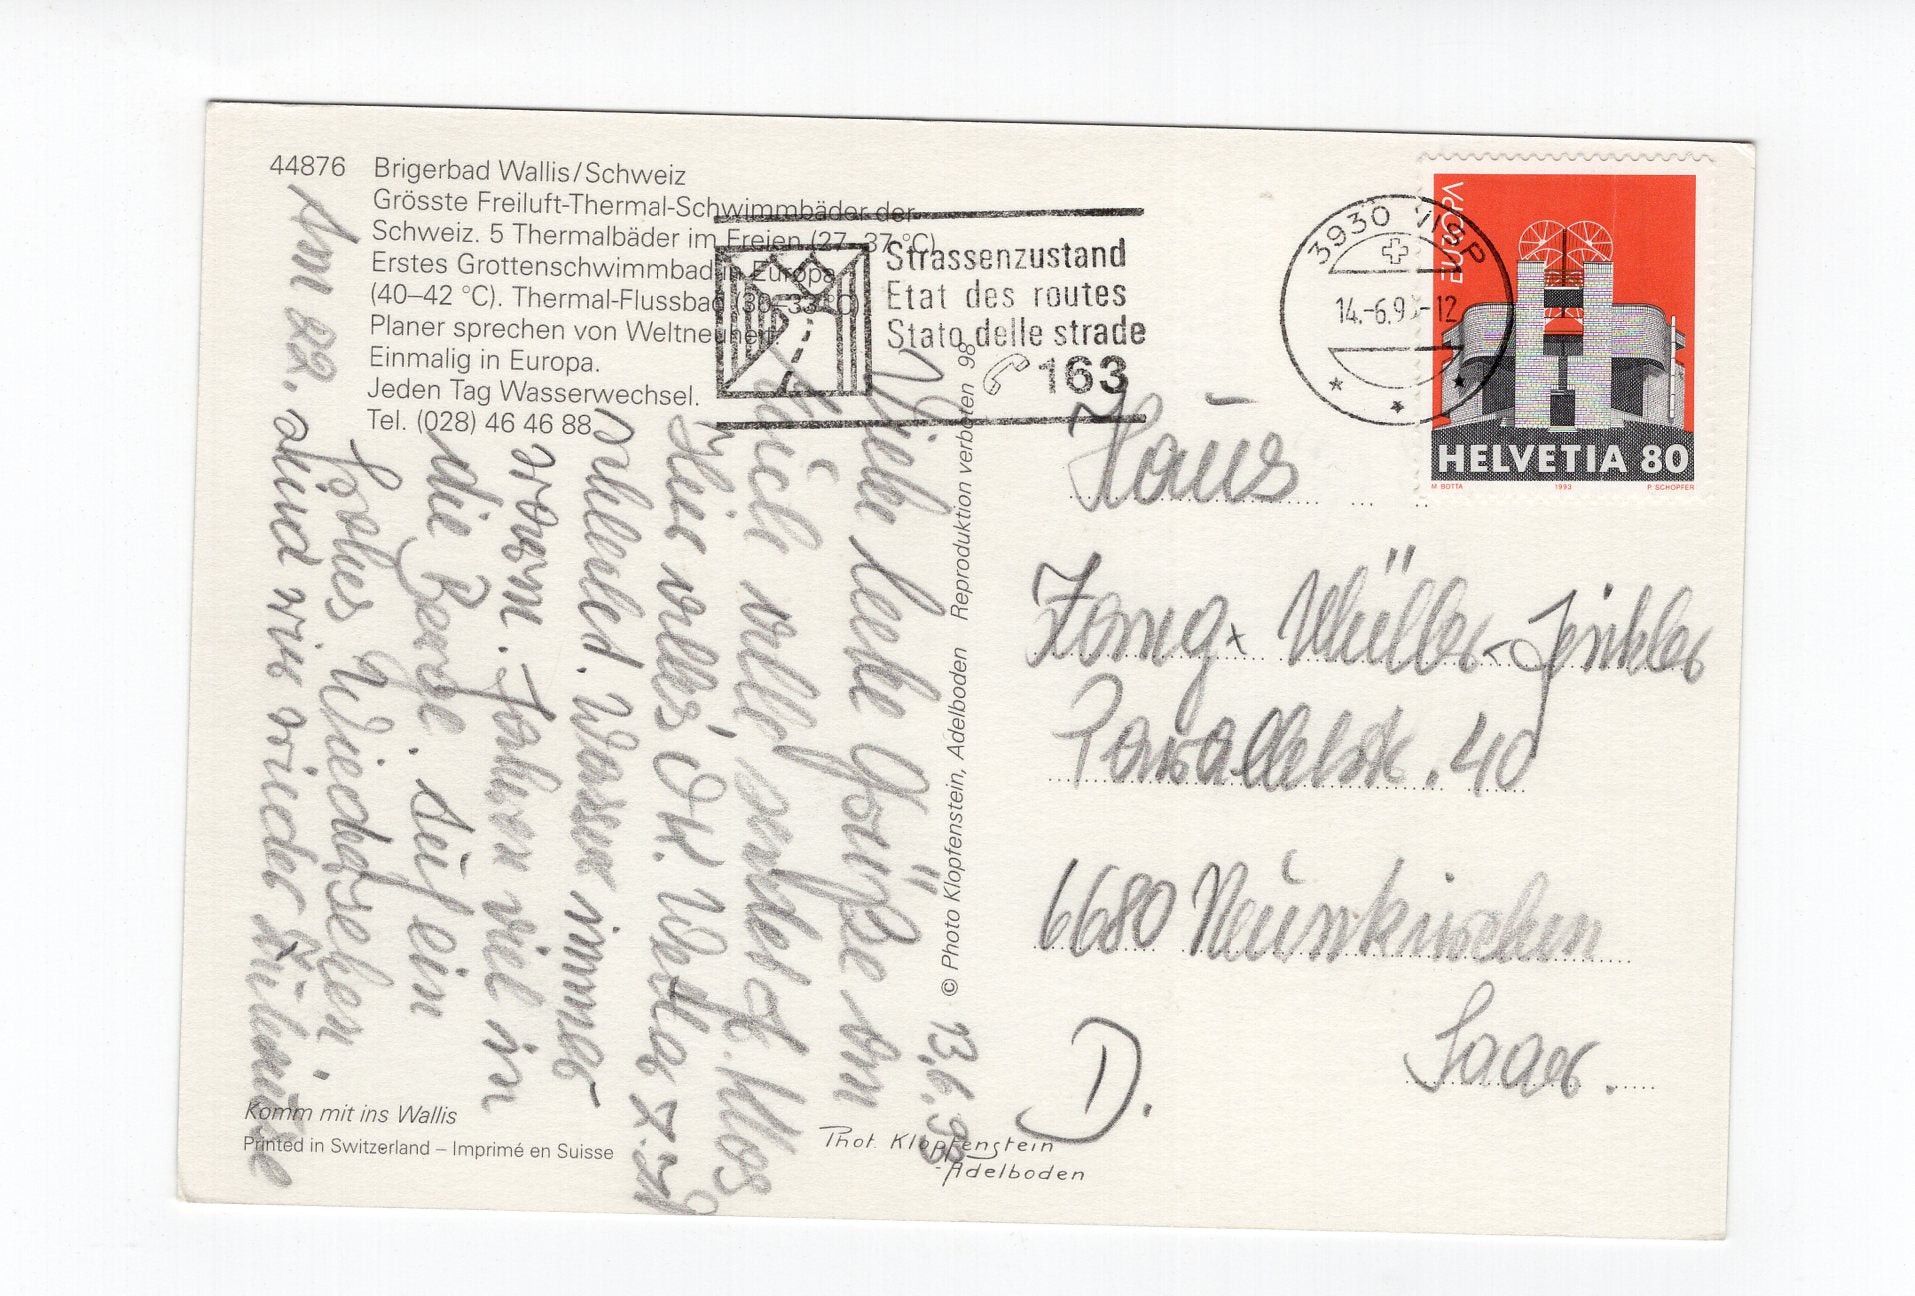 44876 Brigerbad Wallis/Schweiz
Grösste Freiluft-Thermal-Schwimmbäder der
Schweiz. 5 Thermalbäder im Freien (27–37 °C)
Erstes Grottenschwimmbad in Europa
(40–42 °C). Thermal-Flussbad (30–33 °C)
Planer sprechen von Weltneuheit.
Einmalig in Europa.
Jeden Tag Wasserwechsel.
Tel. (028) 46 46 88
Strassenzustand
Etat des routes
Stato delle strade
163
3930 VISP
14.-6.9 -12
EUROPA
HELVETIA 80
M BOTTA 1993 P SCHOPFER
13.6.93
Viele liebe Grüße von
Hier alles OK. Wetter z. Zt
schlecht. Wasser immer
warm. Fahren viel in
die Berge. Auf ein
frohes Wiedersehen.
Am 22. sind wir wieder
© Photo Klopfenstein, Adelboden Reproduktion verboten 98
Haus
Müller-
Parallelstr. 40
6680 Neunkirchen
Saar.
D.
Komm mit ins Wallis
Printed in Switzerland – Imprimé en Suisse
Phot. Klopfenstein
-Adelboden